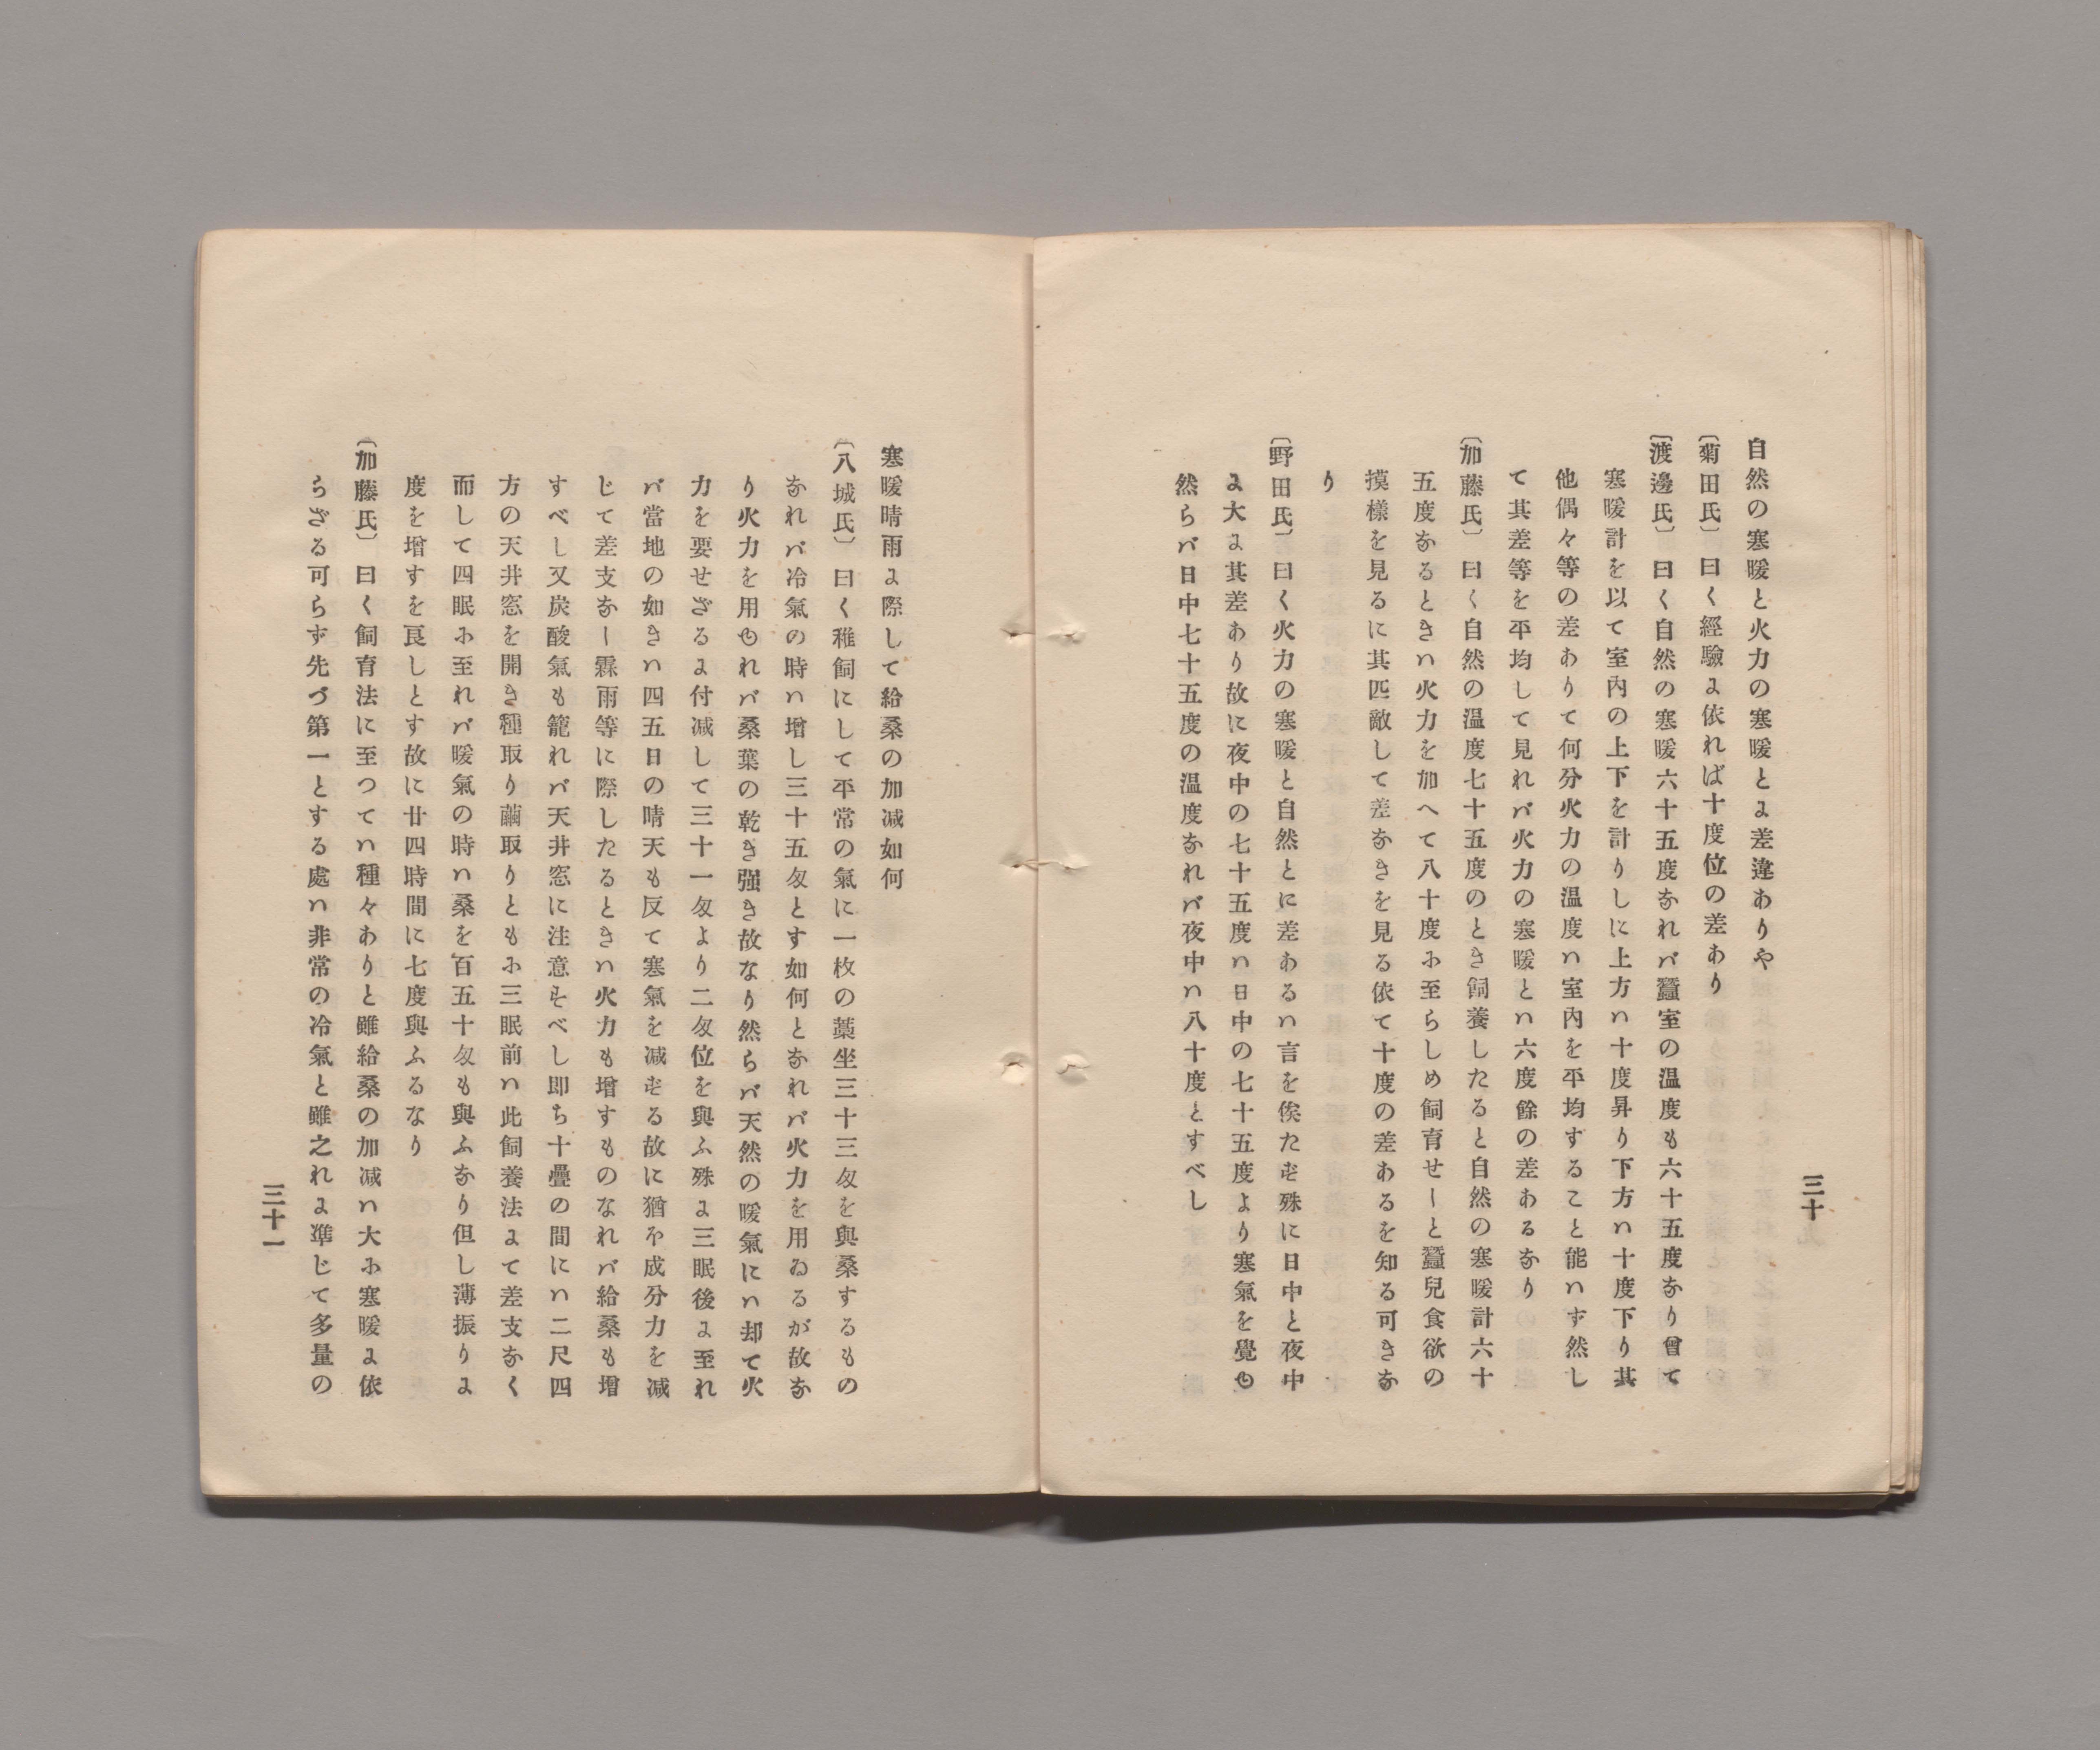 三十
自然の寒暖と火力の寒暖とに差違ありや
〔菊田氏〕曰く經驗に依れば十度位の差あり
〔渡邊氏〕曰く自然の寒暖六十五度なれバ蠶室の温度も六十五度なり曾て
寒暖計を以て室内の上下を計りしに上方ハ十度昇り下方ハ十度下り其
他偶々等の差ありて何分火力の温度ハ室内を平均すること能ハず然し
て其差等を平均して見れバ火力の寒暖とハ六度餘の差あるなり
〔加藤氏〕曰く自然の温度七十五度のとき飼養したると自然の寒暖計六十
五度なるときハ火力を加へて八十度に至らしめ飼育せしと蠶兒食欲の
摸樣を見るに其匹敵して差なきを見る依て十度の差あるを知る可きな
り
〔野田氏〕曰く火力の寒暖と自然とに差あるハ言を俟たず殊に日中と夜中
に大に其差あり故に夜中の七十五度ハ日中の七十五度より寒氣を覺ゆ
然らバ日中七十五度の温度なれバ夜中ハ八十度とすべし
寒暖晴雨に際して給桑の加减如何
〔八城氏〕曰く稚飼にして平常の氣に一枚の藁坐三十三匁を與桑するもの
なれバ冷氣の時ハ增し三十五匁とす如何となれバ火力を用ゐるが故な
り火力を用ゆれバ桑葉の乾き强き故なり然らバ天然の暖氣にハ却て火
力を要せざるに付减して三十一匁より二匁位を與ふ殊に三眠後に至れ
バ當地の如きハ四五日の晴天も反て寒氣を减ずる故に猶ほ成分力を减
じて差支なし霖雨等に際したるときハ火力も增すものなれバ給桑も增
すべし又炭酸氣も籠れバ天井窓に注意すべし即ち十疊の間にハ二尺四
方の天井窓を開き種取り繭取りともに三眠前ハ此飼養法にて差支なく
而して四眠に至れバ暖氣の時ハ桑を百五十匁も與ふなり但し薄振りに
度を增すを良しとす故に廿四時間に七度與ふるなり
〔加藤氏〕曰く飼育法に至つてハ種々ありと雖給桑の加减ハ大に寒暖に依
らざる可らず先づ第一とする處ハ非常の冷氣と雖之れに準じて多量の
三十一